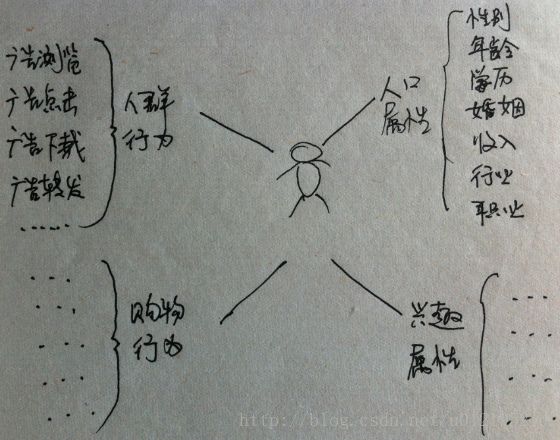 广告浏览
广告点击
广告下载
广告转发
......
人群
行为
人口
属性
性别
年龄
学历
婚姻
收入
行业
职业
购物
行为
兴趣
属性
http://blog.csdn.net/u0